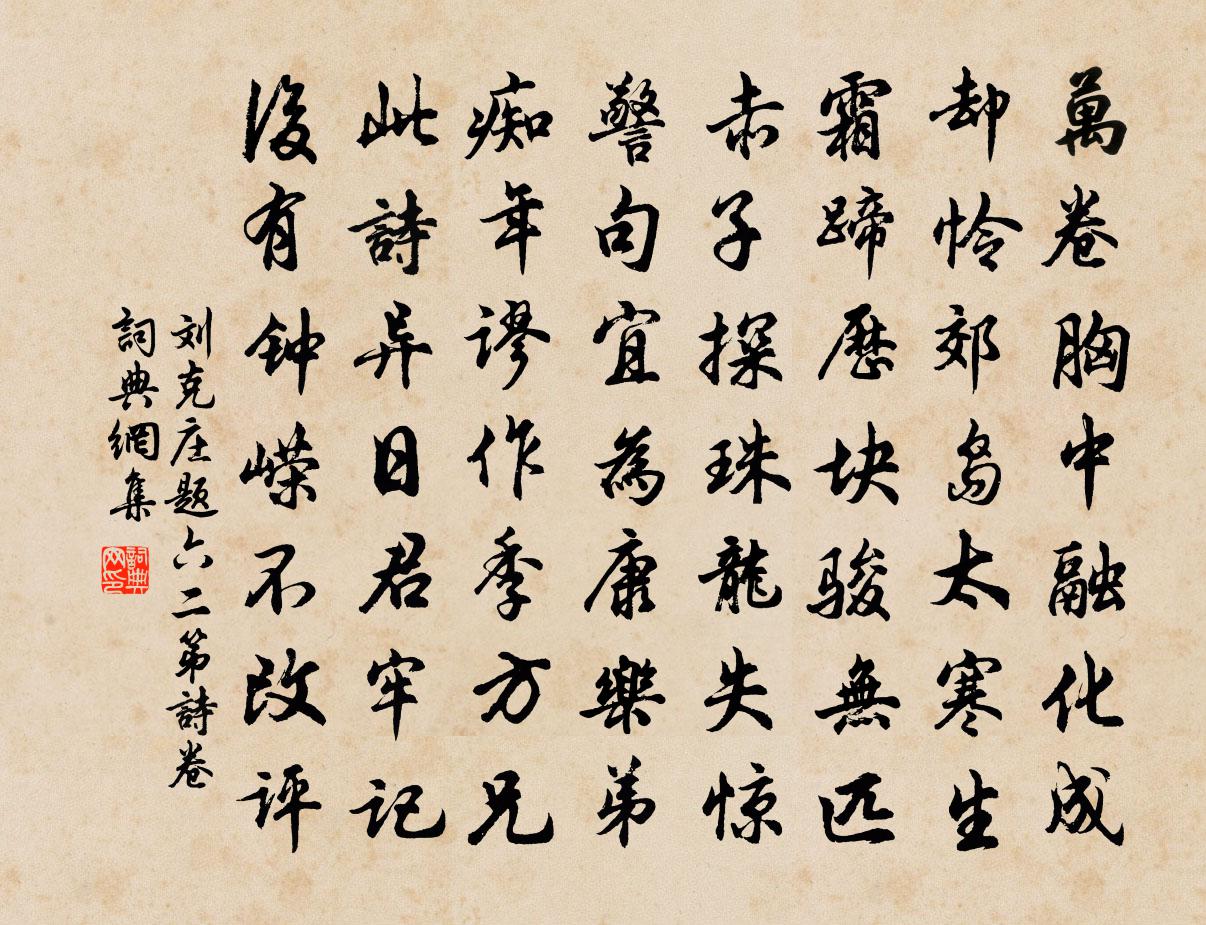 萬卷胸中融化成
却怜郊島太寒生
霜蹄歷块骏無匹
赤子探珠龍失惊
警句宜為康樂弟
痴年谬作季方兄
此詩异日君牢记
後有钟嵘不改评
刘克庄题六二第詩卷
詞典網集
詞典网印